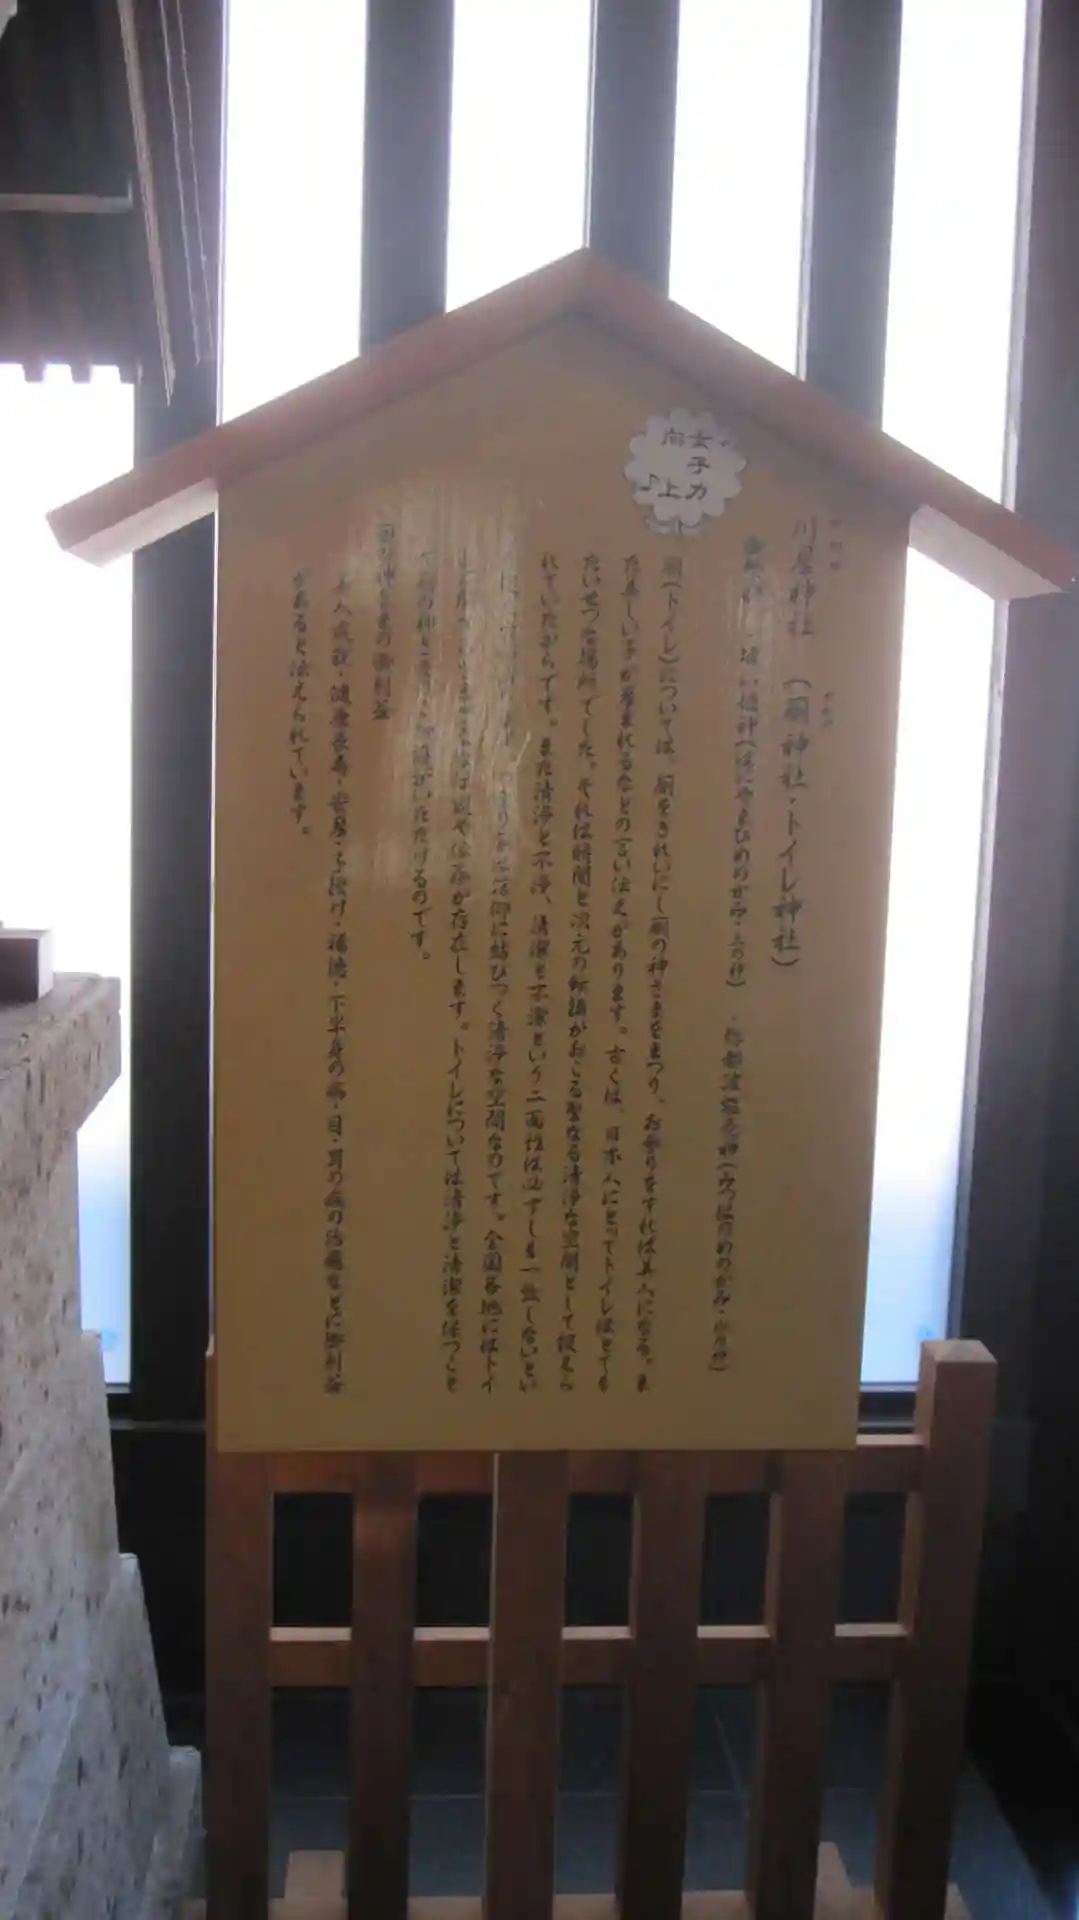 女子力
向上♪
川屋神社 (厠神社・トイレ神社)
・埴山姫神(はにやまひめのかみ・土の神) ・弥都波能売神(みつはのめのかみ・水の神)
厠(トイレ)については、厠をきれいにし厠の神さまをまつり、お参りをすれば美人になる。ま
た美しい子が産まれるなどの言い伝えがあります。古くは、日本人にとってトイレはとても
たいせつな場所でした。それは時間と次元の転換がおこる聖なる清浄な空間として捉えら
れていたからです。また清浄と不浄、清潔と不潔という二面性は必ずしも一致しないとい
信仰に結びつく清浄な空間なのです。全国各地にはトイ
が存在します。トイレについては清浄と清潔を保つこと
で厠の神さまのご加護がいただけるのです。
厠の神さまの御利益
美人成就・健康長寿・安産・子授け・福徳・下半身の病・目・胃の病の治癒などに御利益
があると伝えられています。